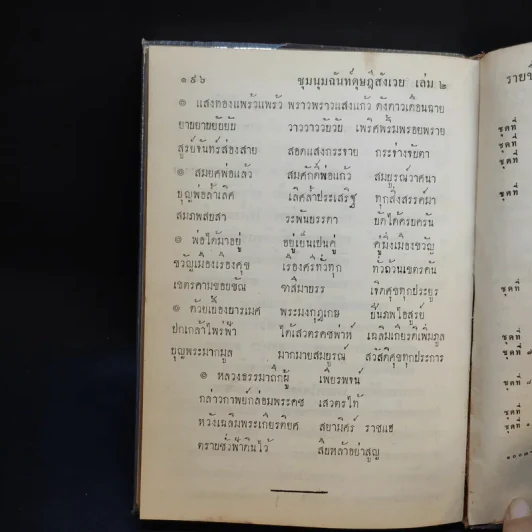 ๑๙๖ ชุมนุมฉันท์ดุษฎีสังเวย เล่ม ๒
๏ แสงทองแพร้วแพร้ว พราวพราวแสงแก้ว ดังดาวเดือนฉาย
ยายยายยัยยัย วาววาววัยวัย เพริศพริ้มพรอยพราย
สูรย์จันทร์ส่องสาย สอดแสงกระจาย กระจ่างจับตา
๏ สมยศพ่อแล้ว สมศักดิ์พ่อแก้ว สมบูรณ์วาศนา
บุญพ่อล้ำเลิศ เลิศล้ำประเสริฐ ทุกสิ่งสรรค์มา
สมภพสบสา ระพันธรรดา
๏ พ่อได้มาอยู่ อยู่เย็นเปนคู่ คู่มิ่งเมืองขวัญ
ขวัญเมืองเรืองศุข เรืองศรีทั่วทุก ทั่วถ้วนเขตรคัน
เขตรคามขอบขัณ ฑสีมาบรร เจิดศุขทุกประยูร
๏ ด้วยเยื้องยารเมศ พระมงกุฎเกษ ปิ่นภพไอสูรย์
ปกเกล้าไพร่ฟ้า ได้เสวตรคชพ่าห์ เฉลิมเกียรติเพิ่มภูล
บุญพระมากมูล มากมายสมบูรณ์ สวัสดิศุขทุกประการ
๏ หลวงธรรมาถึกผู้ เพียรพจน์
กล่าวกาพย์กล่อมพระคช เสวตรไท้
หวังเฉลิมพระเกียรติยศ สยามิศร์ ราชแฮ
ตราบชั่วฟ้าดินไว้ สืบหล้าอย่าสูญ
รายชื่
ชุดที่
ชุดที่
ชุดที่
ชุดที่
ชุดที่
ชุดที่
ชุดที่
ชุดที่
ชุดที่